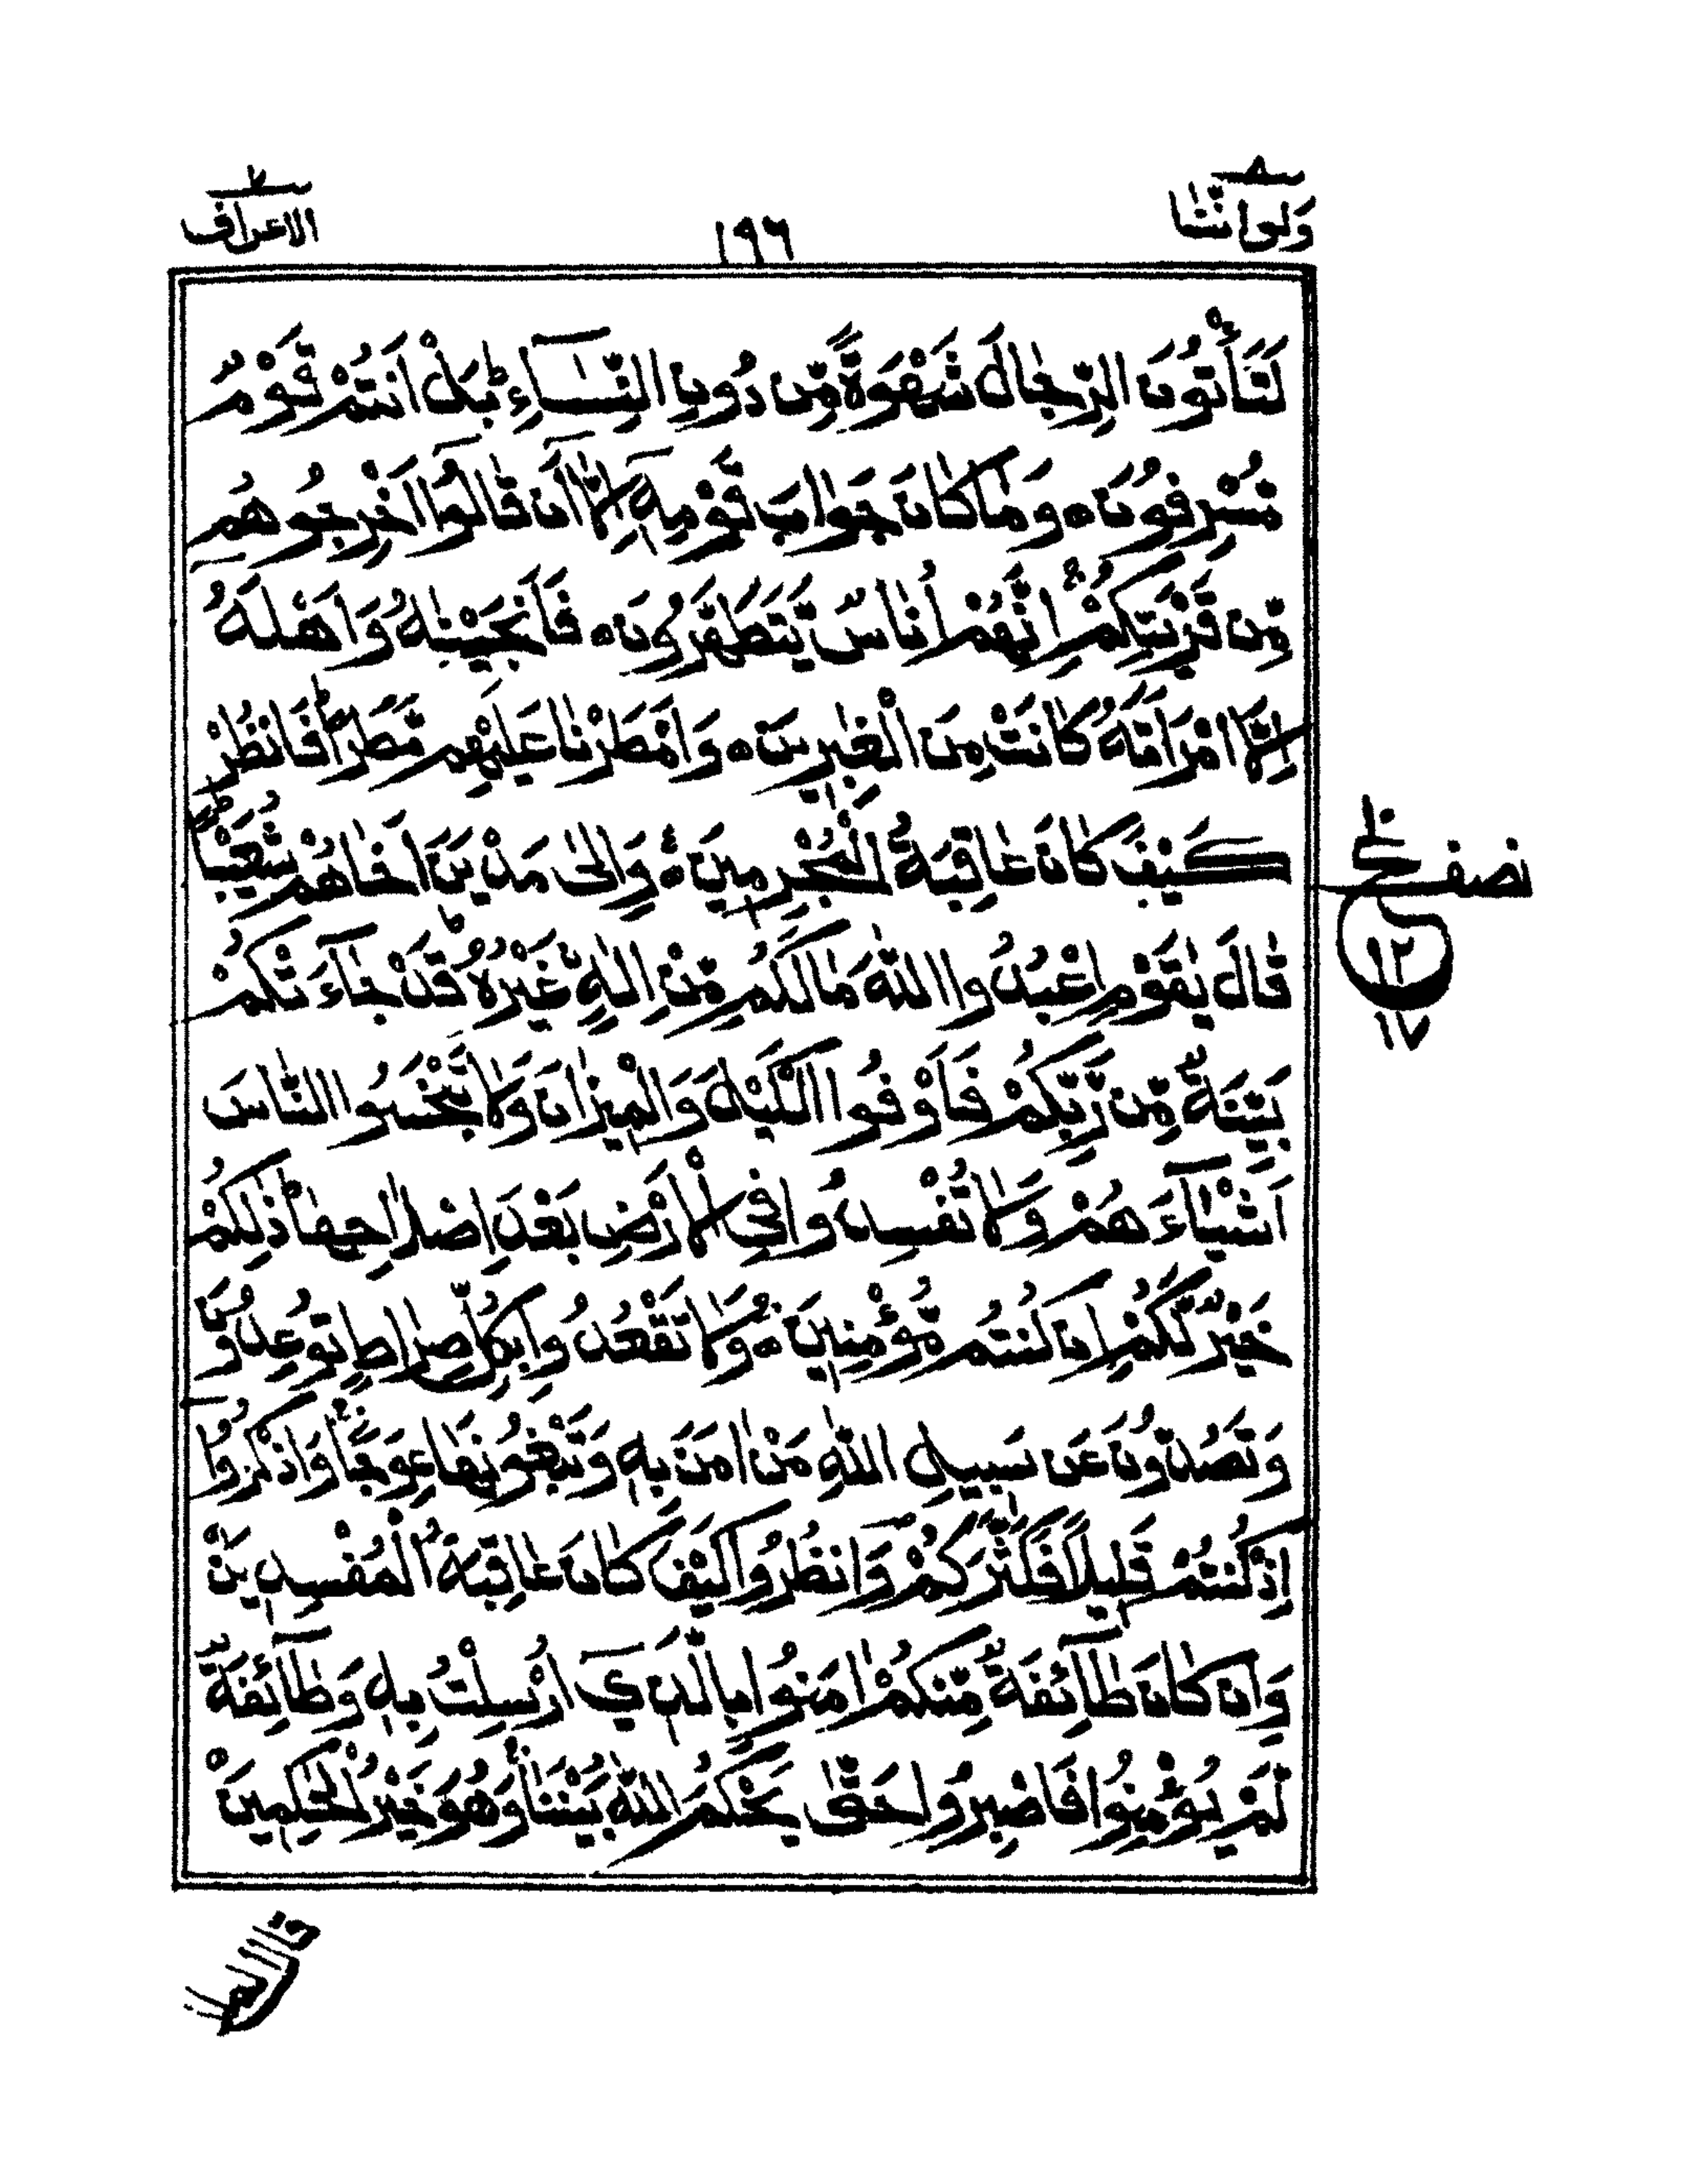 ٨
وَلَوْ اَنَّنَا
١٩٦
٧
الاعراف
لَتَاْتُوْنَ الرِّجَالَ شَهْوَةً مِّنْ دُوْنِ النِّسَآءِ ؕ بَلْ اَنْتُمْ قَوْمٌ
مُّسْرِفُوْنَ ه وَمَا كَانَ جَوَابَ قَوْمِهٖٓ اِلَّآ اَنْ قَالُوْٓا اَخْرِجُوْهُمْ
مِّنْ قَرْيَتِكُمْ ۚ اِنَّهُمْ اُنَاسٌ يَّتَطَهَّرُوْنَ ه فَاَنْجَيْنٰهُ وَاَهْلَهٗٓ
اِلَّا امْرَاَتَهٗ كَانَتْ مِنَ الْغٰبِرِيْنَ ه وَاَمْطَرْنَا عَلَيْهِمْ مَّطَرًا ؕ فَانْظُرْ
كَيْفَ كَانَ عَاقِبَةُ الْمُجْرِمِيْنَ ه وَاِلٰى مَدْيَنَ اَخَاهُمْ شُعَيْبًا ؕ
قَالَ يٰقَوْمِ اعْبُدُوا اللّٰهَ مَا لَكُمْ مِّنْ اِلٰهٍ غَيْرُهٗ ؕ قَدْ جَآءَتْكُمْ
بَيِّنَةٌ مِّنْ رَّبِّكُمْ فَاَوْفُوا الْكَيْلَ وَالْمِيْزَانَ وَلَا تَبْخَسُوا النَّاسَ
اَشْيَآءَهُمْ وَلَا تُفْسِدُوْا فِى الْاَرْضِ بَعْدَ اِصْلَاحِهَا ؕ ذٰلِكُمْ
خَيْرٌ لَّكُمْ اِنْ كُنْتُمْ مُّؤْمِنِيْنَ ه وَلَا تَقْعُدُوْا بِكُلِّ صِرَاطٍ تُوْعِدُوْنَ
وَتَصُدُّوْنَ عَنْ سَبِيْلِ اللّٰهِ مَنْ اٰمَنَ بِهٖ وَتَبْغُوْنَهَا عِوَجًا ۚ وَاذْكُرُوْٓا
اِذْ كُنْتُمْ قَلِيْلًا فَكَثَّرَكُمْ وَانْظُرُوْا كَيْفَ كَانَ عَاقِبَةُ الْمُفْسِدِيْنَ ه
وَاِنْ كَانَ طَآئِفَةٌ مِّنْكُمْ اٰمَنُوْا بِالَّذِيْٓ اُرْسِلْتُ بِهٖ وَطَآئِفَةٌ
لَّمْ يُؤْمِنُوْا فَاصْبِرُوْا حَتّٰى يَحْكُمَ اللّٰهُ بَيْنَنَا ۚ وَهُوَ خَيْرُ الْحٰكِمِيْنَ ه
نصف
ع
١٢
١٧
قال الملا